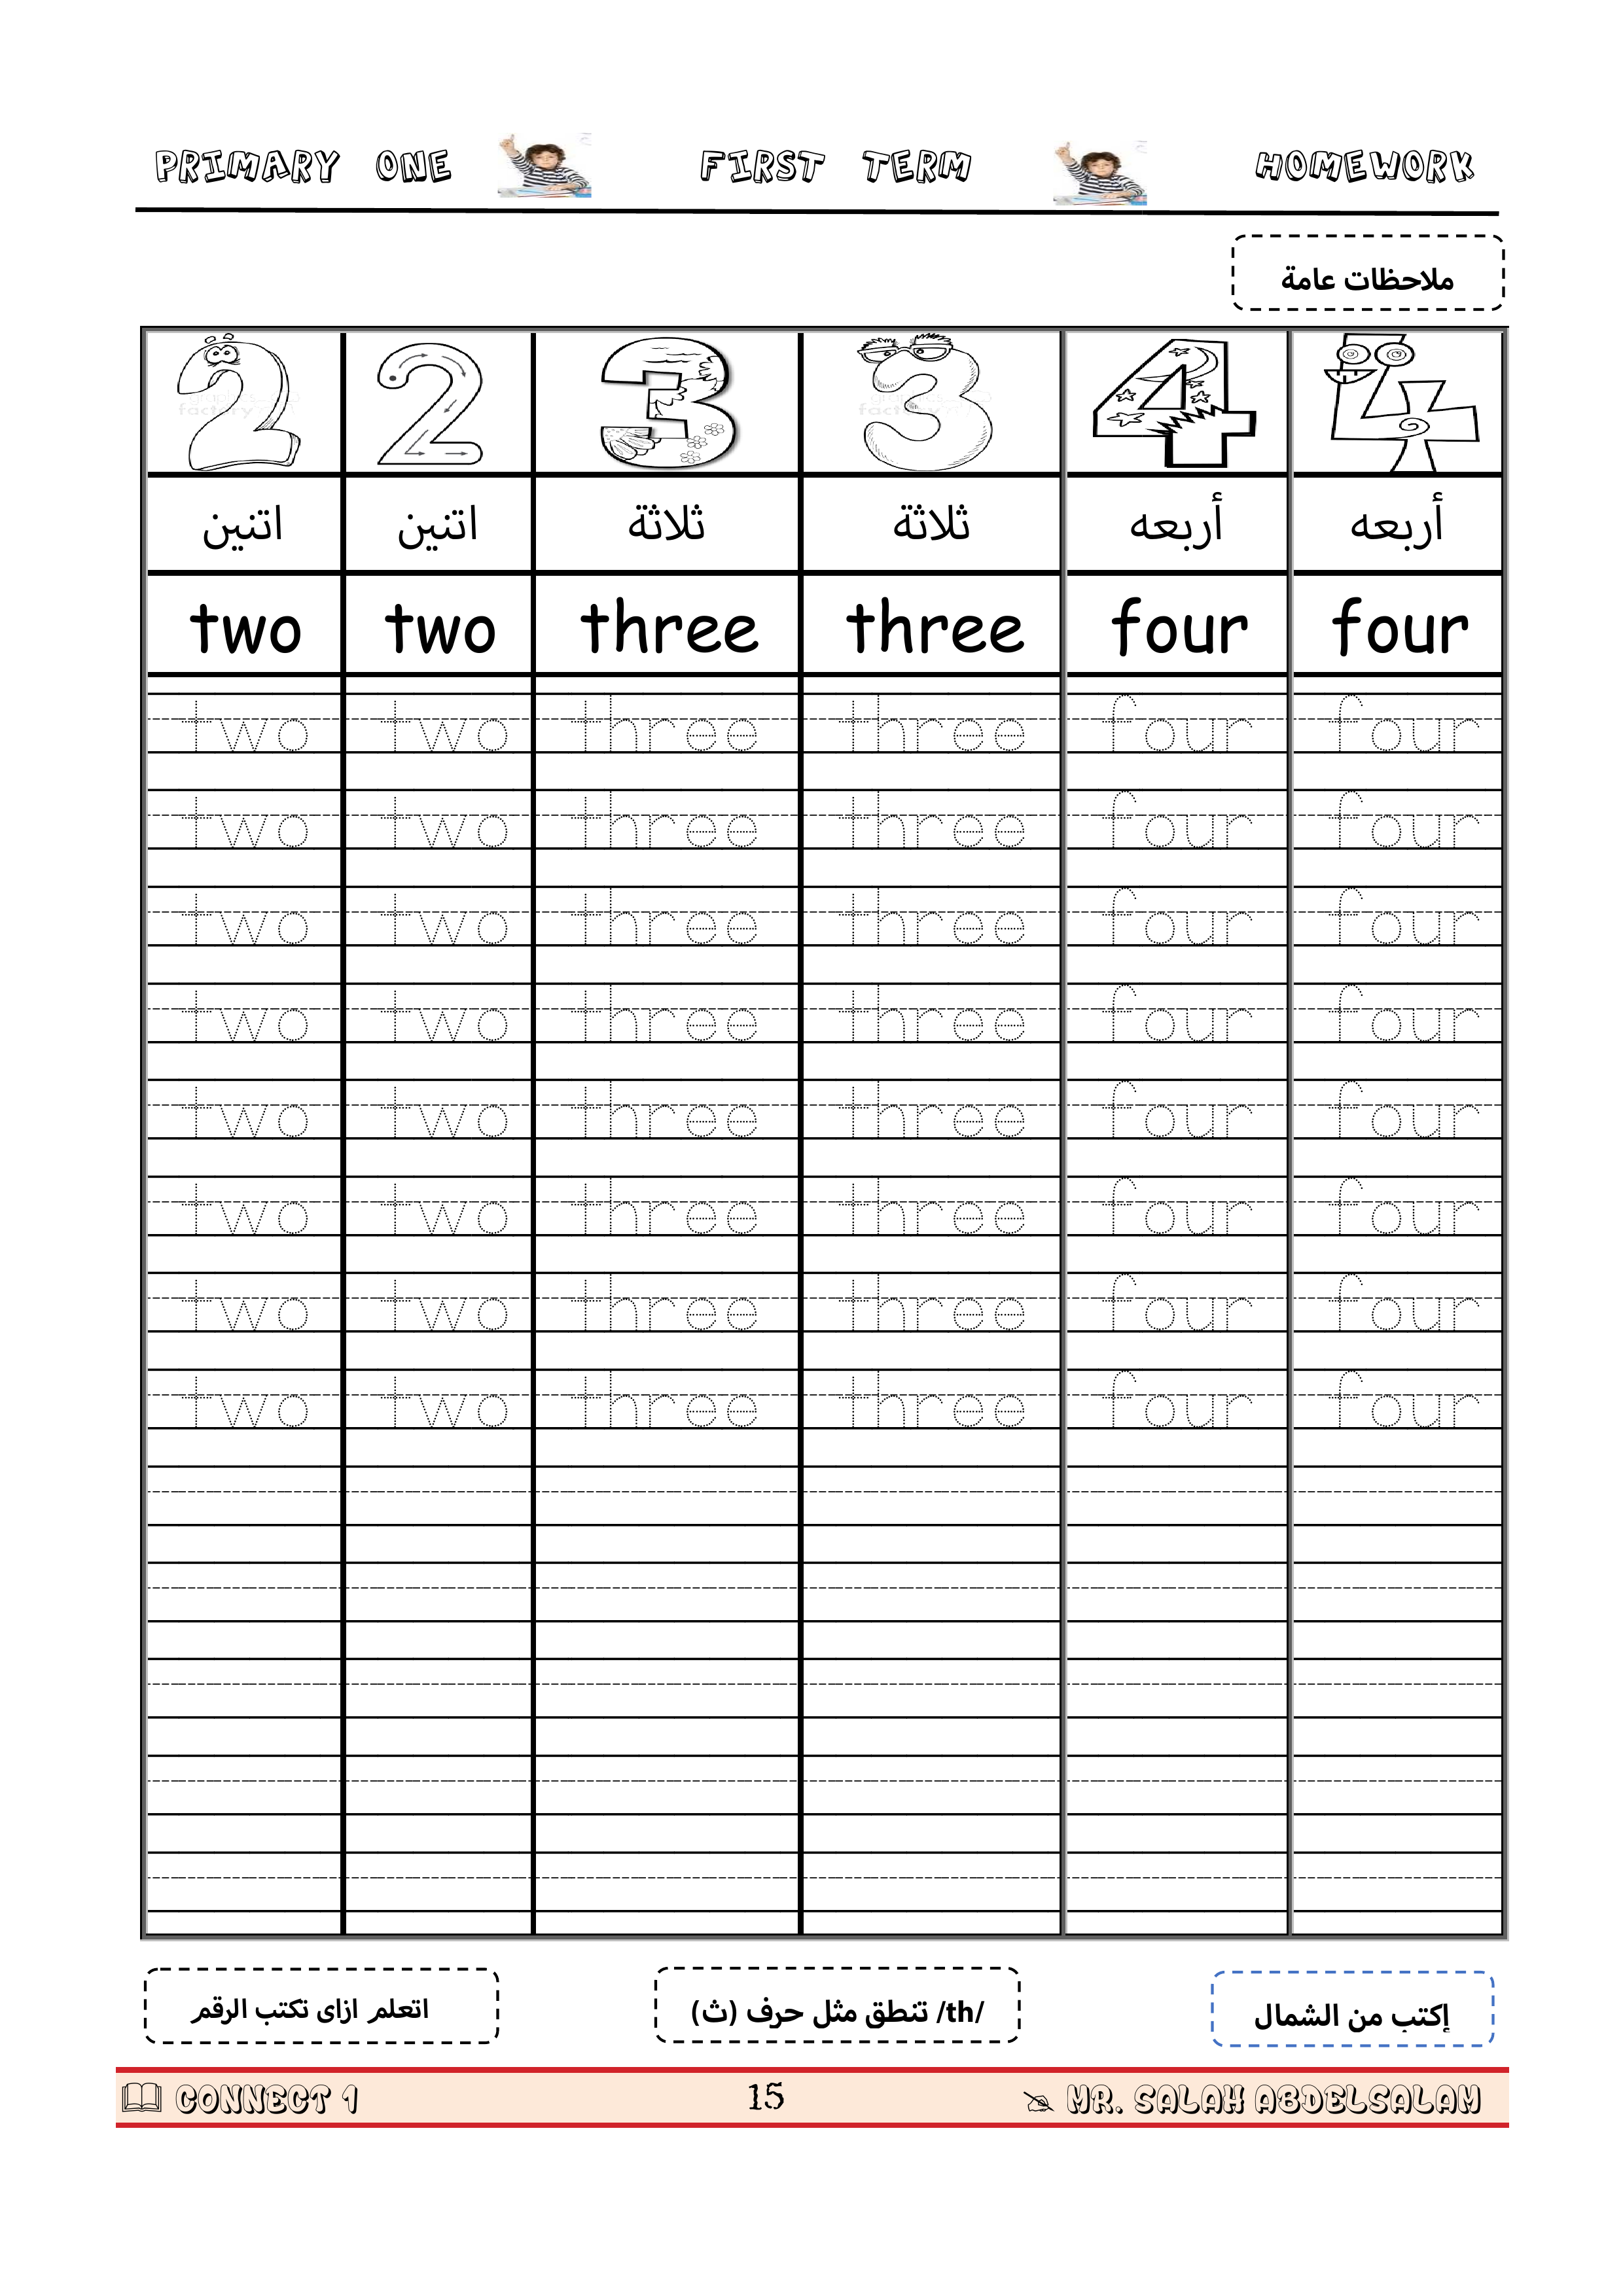 PRIMARY ONE FIRST TERM HOMEWORK
ملاحظات عامة
2 2 3 3 4 4
اتنين اتنين ثلاثة ثلاثة أربعه أربعه
two two three three four four
two two three three four four
two two three three four four
two two three three four four
two two three three four four
two two three three four four
two two three three four four
two two three three four four
two two three three four four
اتعلم ازاى تكتب الرقم
/th/ تنطق مثل حرف (ث)
إكتب من الشمال
CONNECT 1 15 MR. SALAH ABDELSALAM